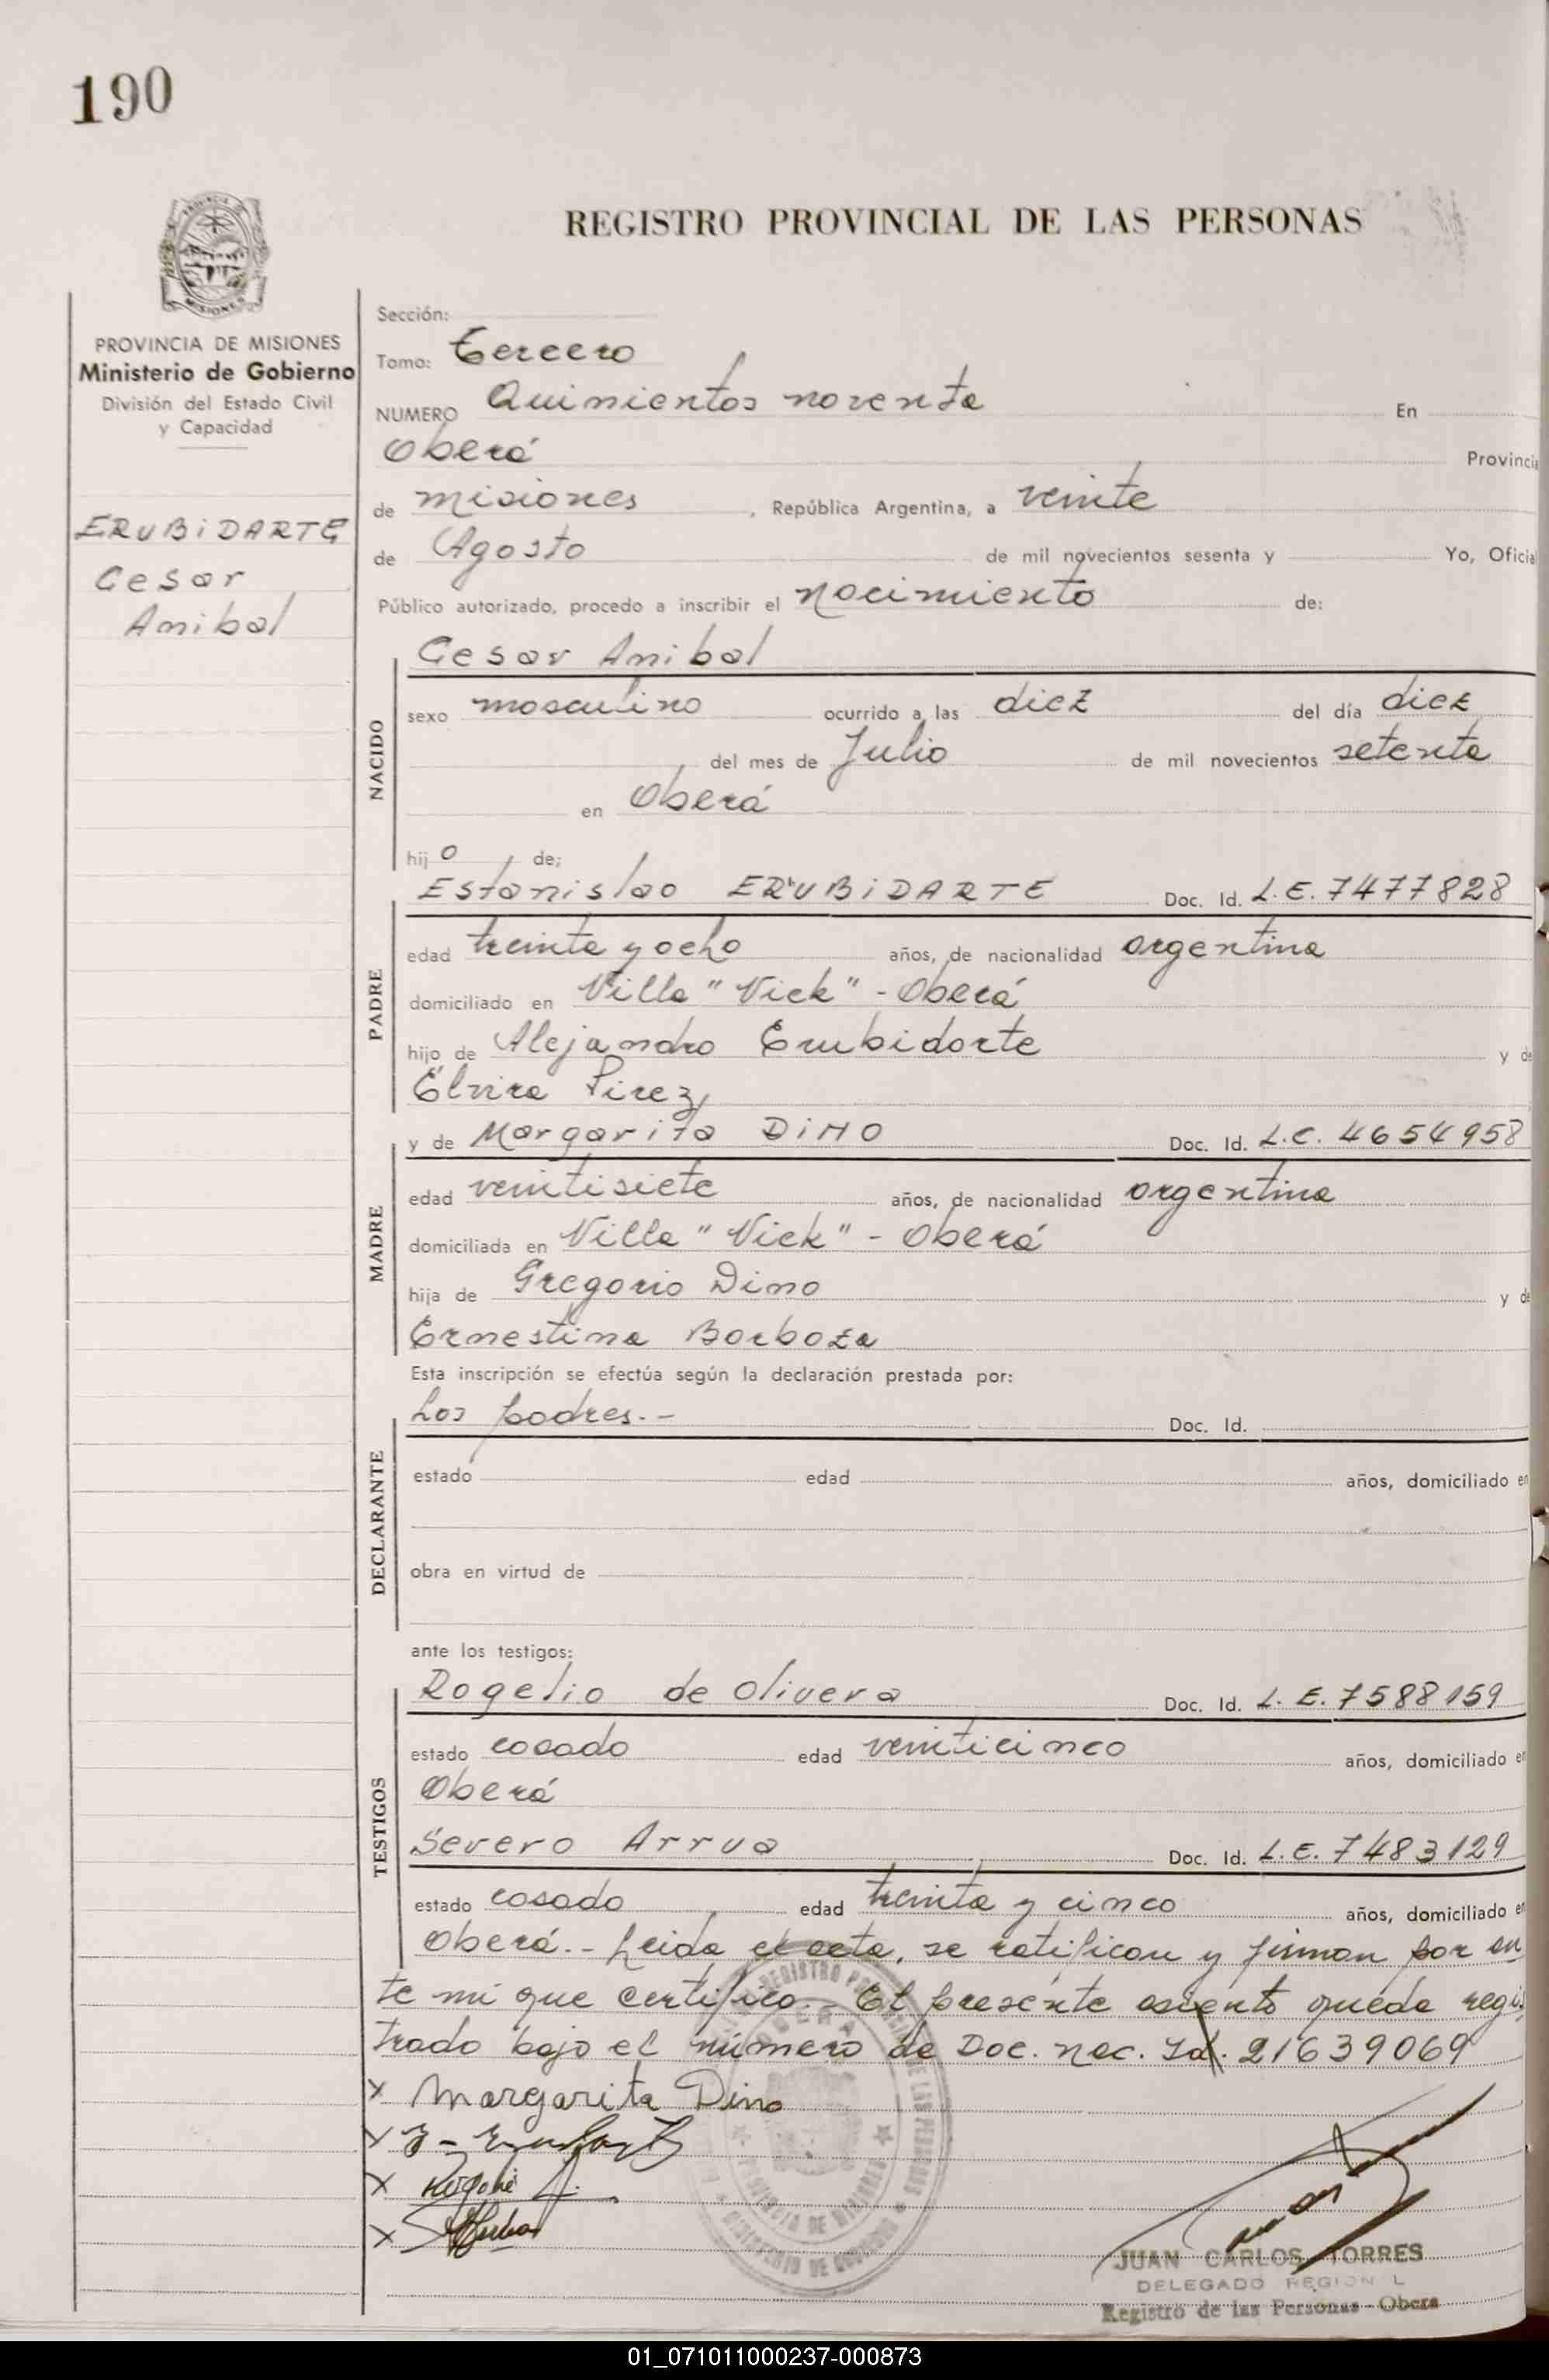 190
REGISTRO PROVINCIAL DE LAS PERSONAS
MISIONES
PROVINCIA DE MISIONES
Ministerio de Gobierno
División del Estado Civil
y Capacidad
ERUBIDARTE
Cesar
Anibal
Sección:
Tomo: Tercero
NUMERO Quinientos noventa En
Oberá Provincia
de misiones, República Argentina, a veinte
de Agosto de mil novecientos sesenta y Yo, Oficial
Público autorizado, procedo a inscribir el nacimiento de:
Cesar Anibal
NACIDO
sexo masculino ocurrido a las diez del día diez
del mes de Julio de mil novecientos setenta
en Oberá
hijo de:
Estanislao ERUBIDARTE Doc. Id. L.E. 7477828
PADRE
edad treinta y ocho años, de nacionalidad argentina
domiciliado en Villa "Vick" - Oberá
hijo de Alejandro Erubidarte y de
Elvira Pirez
y de Margarita DINO Doc. Id. L.C. 4654958
MADRE
edad veintisiete años, de nacionalidad argentina
domiciliada en Villa "Vick" - Oberá
hija de Gregorio Dino y de
Ernestina Borboza
Esta inscripción se efectúa según la declaración prestada por:
Los padres.- Doc. Id.
DECLARANTE
estado edad años, domiciliado en
obra en virtud de
ante los testigos:
Rogelio de Olivera Doc. Id. L.E. 7588159
TESTIGOS
estado casado edad veinticinco años, domiciliado en
Oberá
Severo Arrua Doc. Id. L.E. 7483129
estado casado edad treinta y cinco años, domiciliado en
Oberá.- Leida el acta, se ratifican y firman por an
te mi que certifico.- El presente asiento queda regis
trado bajo el número de Doc. nac. Id. 21639069
x Margarita Dino
x
x
x
JUAN CARLOS TORRES
DELEGADO REGIONAL
Registro de las Personas - Obera
01_071011000237-000873